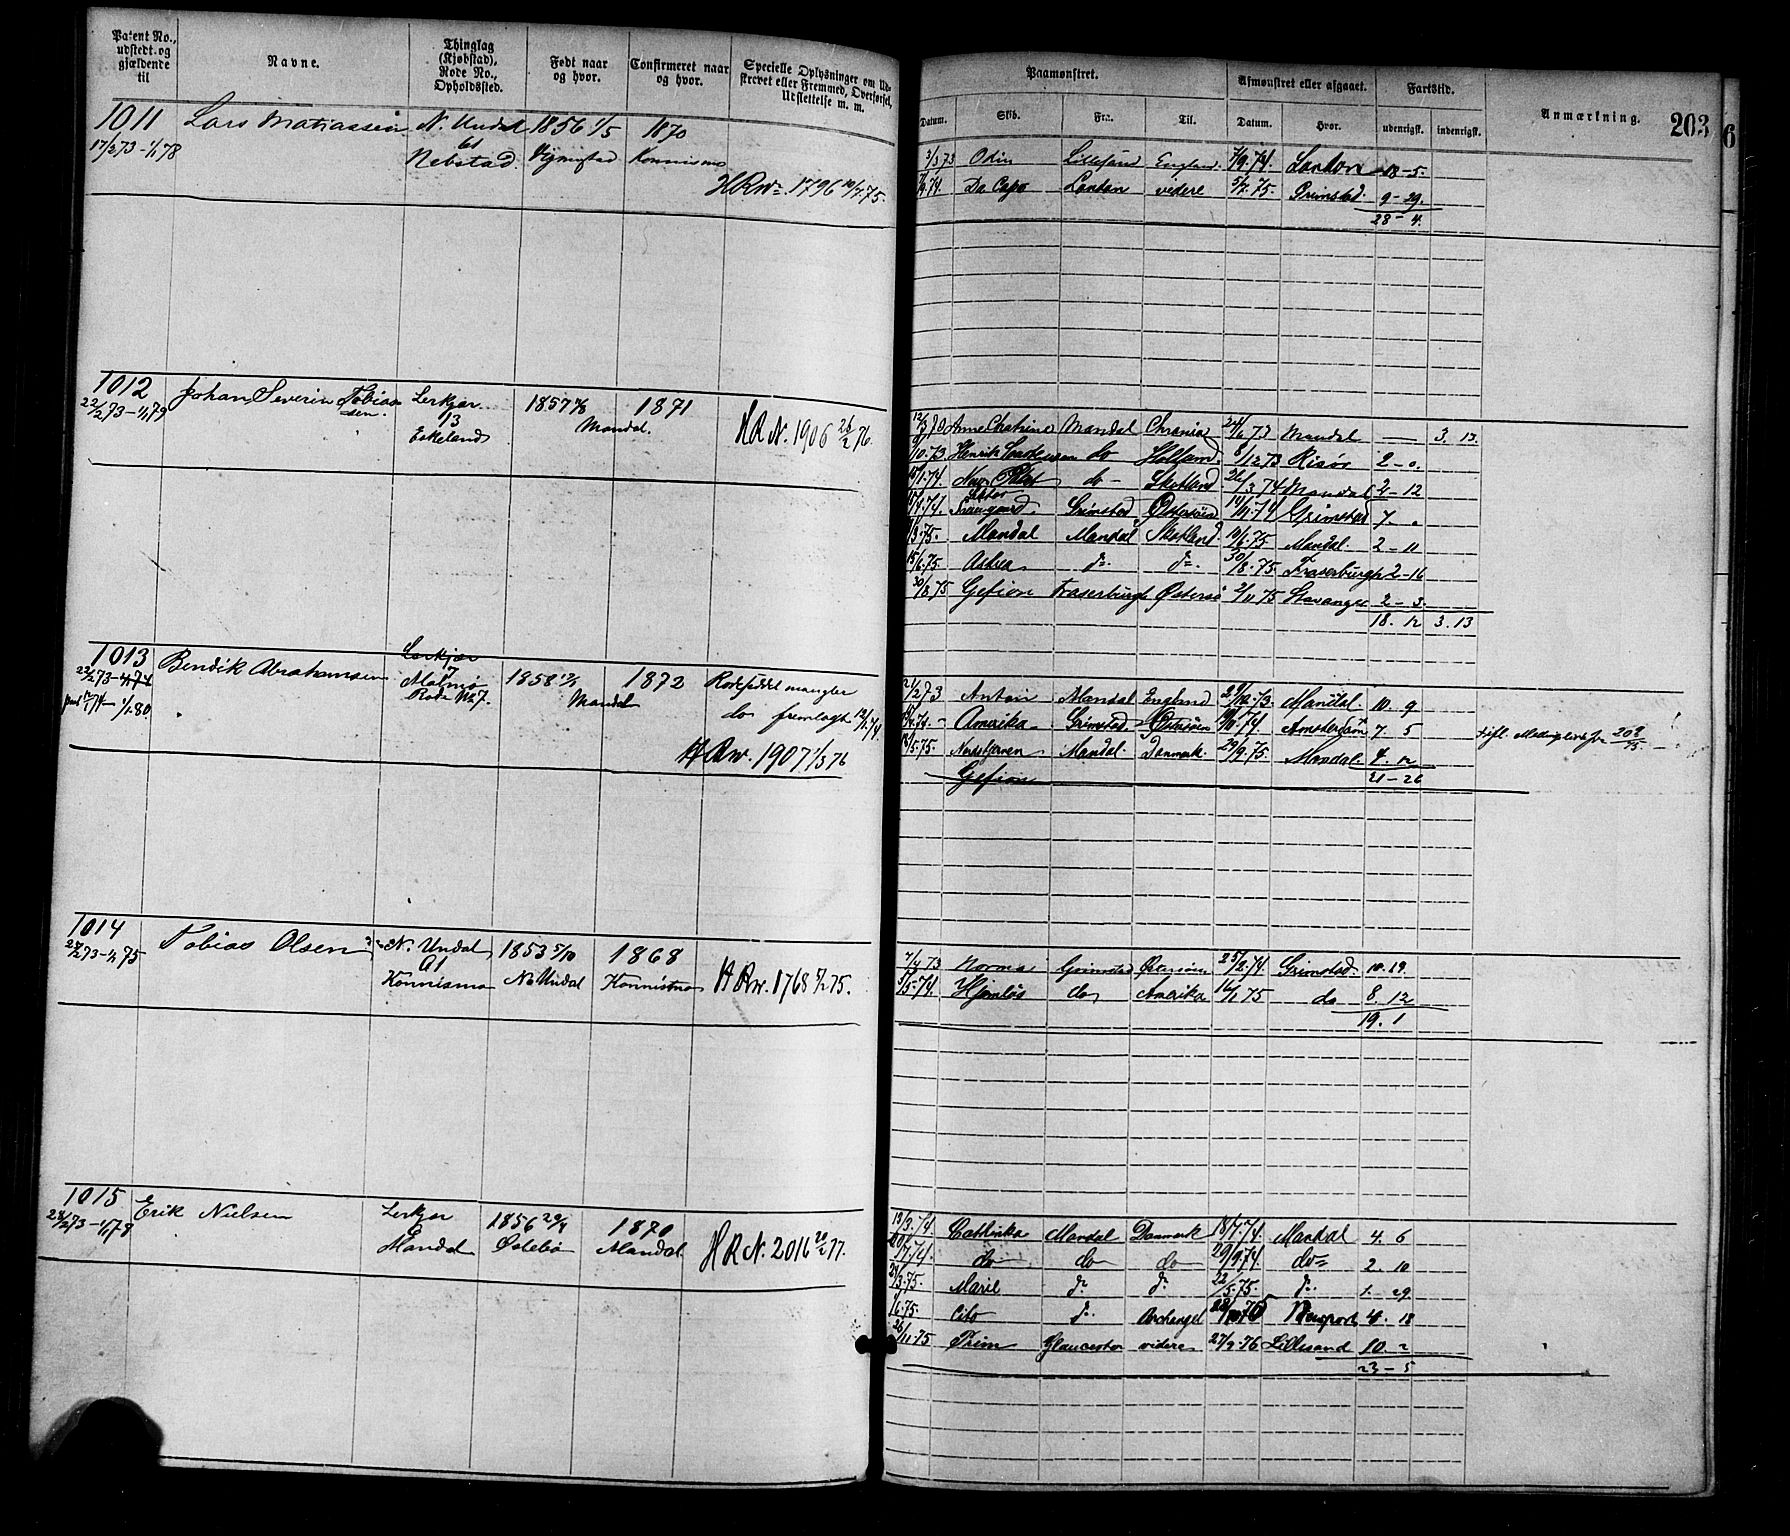 Patent No., udstedt og gjældende til
Navne.
Thinglag (Kjøbstad), Rode No., Opholdssted.
Født naar og hvor.
Confirmeret naar og hvor.
Specielle Oplysninger om Udskrevet eller Fremmed, Overførsel, Udslettelse m. m.
Paamønstret.
Afmønstret eller afgaaet.
Fartstid.
Anmærkning.
203
Datum. Skib. Fra. Til. Datum. Hvor. udenrigsk. indenrigsk.
1011 Lars Matiassen N. Undal 1856 1/5 1870
17/2 73 - 1/1 78 61 Nebstad Konnismo
HRN 1796 10/4 75.
3/3 73 Odin England 7/9 74 London 18 - 5.
7/9 74. Da Capo London videre 5/7. 75. Grimstad 9 - 29.
28 - 4.
1012 Johan Severin Tobiassen Lerkjær 1857 1871
22/2 73 - 1/1 79 13 Mandal.
Eikeland
HRN. 1906 26/2 76.
Anne Chatrine Mandal Chrania 24/6 73 Mandal — 3. 13.
/10.73 Henrik do Holland 8/12 73 Risør 2 - 0.
/1.74. do - Skotland 26/3 74 Mandal 2 - 12
/4.74. Grimstad Østersøen 14/11.74 Grimstad 7. "
/3.75. Mandal Mandal Skotland 10/6.75 Mandal. 2 - 11
15/6.75. Astrea do. do. 30/8.75. Fraserburgh 2 - 16
30/8.75 Gefion Fraserburgh Østersø 2/11 75 Stavanger 2 - 3.
18. 12 3. 13
1013 Bendik Abrahamsen Lerkjær 1858 1872 Rodeseddel mangler
22/2 73 - 1/1 74 7 Malmø Mandal do fremlagt 12/1.74
1/1 80 Rode No 7.
HRN. 1907 1/3 76
21/2 73 Anton Mandal England 29/12.73. Mandal. 10. 9
/4.74. - Amerika Grimstad. Østersøen /11.74 Amsterdam 7. 5
/5.75. Mandal. Danmark. 29/9.75. Mandal. 4. 12
Gefion 21 - 26
1014 Tobias Olsen N. Undal 1853 5/10 1868
24/2 73 - 1/1 75 61 Konnismo N. Undal Konnismo
HRN. 1768 75.
7/4 73 Norma Grimstad Østersøen 25/2.74. Grimstad 10. 19.
/5.74. Hjemløs do Amerika 16/1 75 do 8. 12
19. 1
1015 Erik Nielsen Lerkjær 1856 29/4 1870
24/2 73 - 1/1 78 6 Mandal Østebø Mandal.
HRN. 2016 20/2 77.
13/3.74. Cathinka Mandal Danmark 18/7.74. Mandal 4. 6
/7.74. do do do 29/9.74. do 2. 10
/3.75. do. do. 22/5.75. do. 1. 29
/6.75. Cito do. Archangel 28/10 75 Newport 4. 18
26/11.75 Gloucester videre 27/9.76 Lillesand 10. 2
23 - 5